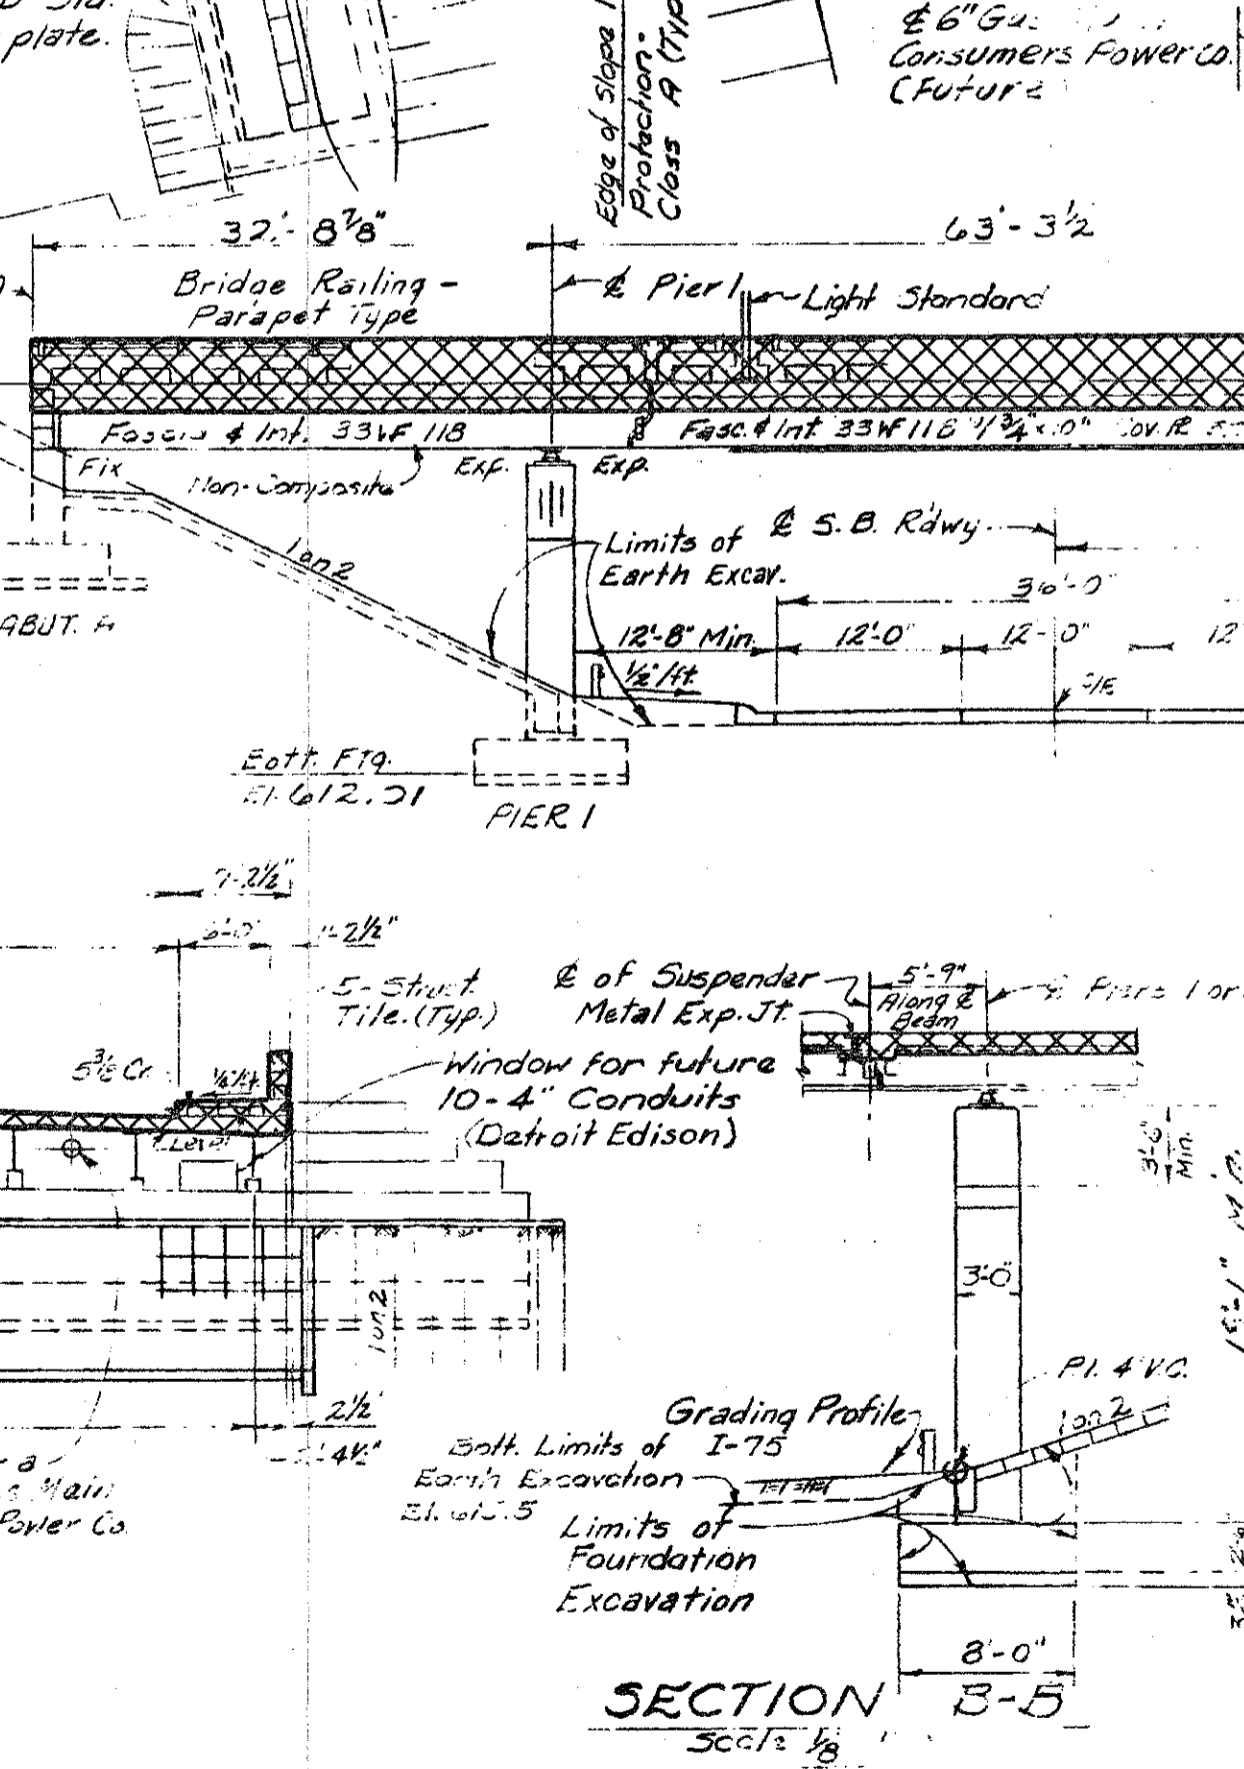 plate.
Edge of Slope
Protection-
Class A (Typ
℄ 6" Gas
Consumers Power Co.
(Future
32'-8 7/8"
63'-3 1/2
Bridge Railing -
Parapet Type
℄ Pier 1
Light Standard
Fascia & Int. 33 WF 118
Fasc. & Int. 33 WF 118
Fix
Non-Composite
Exp.
Exp.
1 on 2
Limits of
Earth Excav.
℄ S.B. Rdwy.
36'-0"
ABUT. A
12'-8" Min.
12'-0"
12'-0"
12'
1/2"/ft.
Bott. Ftg.
El. 612.51
PIER 1
7'-2 1/2"
6'-0"
1'-2 1/2"
5-Struct.
Tile. (Typ.)
℄ of Suspender
Metal Exp. Jt.
5'-9"
Along ℄
Beam
℄ Piers 1 or
Window for future
10-4" Conduits
(Detroit Edison)
Level
3'-6"
Min.
3'-0"
1 on 2
P.I. 4' V.C.
1 on 2
2 1/2"
Grading Profile
I-75
Bott. Limits of
Earth Excavation
Limits of
Foundation
Excavation
Main
Power Co.
8'-0"
SECTION B-B
Scale 1/8